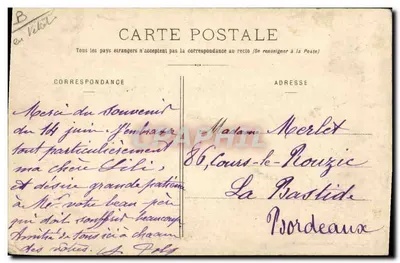 B
en Vélo
CARTE POSTALE
Tous les pays étrangers n'acceptent pas la correspondance au recto (Se renseigner à la Poste)
CORRESPONDANCE
ADRESSE
Merci du souvenir
du 14 juin. J'embrasse
tout particulièrement
ma chère Lili,
et désire grande patience
à Me votre beau père
qui doit souffrir beaucoup
Amitié de tous ici à chacun
des vôtres.
Madame Merlet
86, Cours-le-Rouzic
La Bastide
Bordeaux